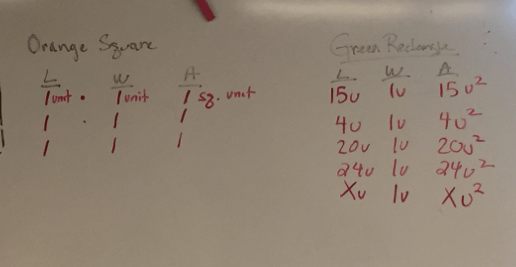 Orange Square
L W A
1 unit · 1 unit 1 sq. unit
1 · 1 1
1 1 1
Green Rectangle
L W A
15u 1u 15u²
4u 1u 4u²
20u 1u 20u²
24u 1u 24u²
Xu 1u Xu²